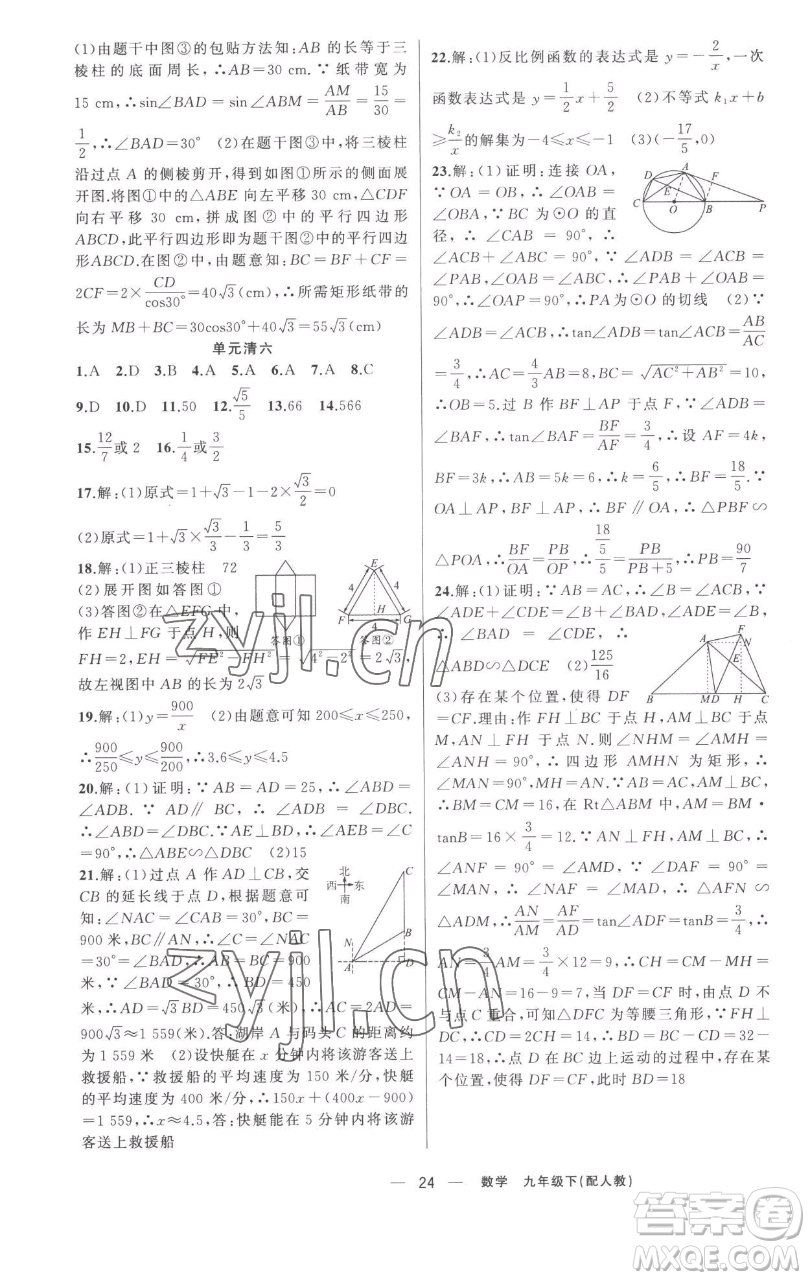 (1)由题干中图③的包贴方法知:AB 的长等于三
棱柱的底面周长,∴AB=30 cm.∵纸带宽为
15 cm,∴sin∠BAD=sin∠ABM=AM/AB=15/30=
1/2,∴∠BAD=30° (2)在题干图③中,将三棱柱
沿过点 A 的侧棱剪开,得到如图①所示的侧面展
开图.将图①中的△ABE 向左平移 30 cm,△CDF
向右平移 30 cm,拼成图②中的平行四边形
ABCD,此平行四边形即为题干图②中的平行四边形
ABCD.在图②中,由题意知:BC=BF+CF=
2CF=2×CD/cos30°=40√3(cm),∴所需矩形纸带的
长为 MB+BC=30cos30°+40√3=55√3(cm)
单元清六
1.A 2.D 3.B 4.A 5.A 6.A 7.A 8.C
9.D 10.D 11.50 12.√5/5 13.66 14.566
15.12/7或 2 16.1/4或3/2
17.解:(1)原式=1+√3-1-2×√3/2=0
(2)原式=1+√3×√3/3-1/3=5/3
18.解:(1)正三棱柱 72
(2)展开图如答图①
(3)答图②在△EFG 中,
作 EH⊥FG 于点 H,则
答图① 答图②
E 4 4 F H G 4
FH=2,EH=√(FE²-FH²)=√(4²-2²)=2√3,
故左视图中 AB 的长为 2√3
19.解:(1)y=900/x (2)由题意可知 200≤x≤250,
∴900/250≤y≤900/200,∴3.6≤y≤4.5
20.解:(1)证明:∵AB=AD=25,∴∠ABD=
∠ADB.∵AD∥BC,∴∠ADB=∠DBC.
∴∠ABD=∠DBC.∵AE⊥BD,∴∠AEB=∠C
=90°,∴△ABE∽△DBC (2)15
21.解:(1)过点 A 作 AD⊥CB,交
CB 的延长线于点 D,根据题意可
知:∠NAC=∠CAB=30°,BC=
900 米,BC∥AN,∴∠C=∠NAC
=30°=∠BAD,∴AB=BC=900
米,∵∠BAD=30°,∴BD=450
米,∴AD=√3BD=450√3(米),∴AC=2AD=
北 西 东 南
C N B A D
900√3≈1 559(米),答:湖岸 A 与码头 C 的距离约
为 1 559 米 (2)设快艇在 x 分钟内将该游客送上
救援船,∵救援船的平均速度为 150 米/分,快艇
的平均速度为 400 米/分,∴150x+(400x-900)
=1 559,∴x≈4.5,答:快艇能在 5 分钟内将该游
客送上救援船
22.解:(1)反比例函数的表达式是 y=-2/x,一次
函数表达式是 y=1/2x+5/2 (2)不等式 k₁x+b
≥k₂/x的解集为-4≤x≤-1 (3)(-17/5,0)
23.解:(1)证明:连接 OA,
∵OA=OB,∴∠OAB=
∠OBA,∵BC 为⊙O 的直
径,∴∠CAB=90°,∴
D A F C O B P
∠ACB+∠ABC=90°,∵∠ADB=∠ACB=
∠PAB,∴∠PAB+∠OAB=
90°,∴∠OAP=90°,∴PA为⊙O 的切线 (2)∵
∠ADB=∠ACB,∴tan∠ADB=tan∠ACB=AB/AC
=3/4,∴AC=8,AB=6,∴BC=√(AC²+AB²)=10,
∴OB=5.过 B 作 BF⊥AP 于点 F,∵∠ADB=
∠BAF,∴tan∠BAF=BF/AF=3/4,∴设 AF=4k,
BF=3k,∴AB=5k=6,∴k=6/5,∴BF=18/5.∵
OA⊥AP,BF⊥AP,∴BF∥OA,∴△PBF∽
△POA,∴BF/OA=BP/OP,∴(18/5)/5=PB/(PB+5),∴PB=90/7
24.解:(1)证明:∵AB=AC,∴∠B=∠ACB,∵
∠ADE+∠CDE=∠B+∠BAD,∠ADE=∠B,
∴∠BAD=∠CDE,∴
△ABD∽△DCE (2)125/16
A F N E B M D H C
(3)存在某个位置,使得 DF
=CF.理由:作 FH⊥BC 于点 H,AM⊥BC 于点
M,AN⊥FH 于点 N,则∠NHM=∠AMH=
∠ANH=90°,∴四边形 AMHN 为矩形,∴
∠MAN=90°,MH=AN,∵AB=AC,AM⊥BC,
∴BM=CM=16,在Rt△ABM 中,AM=BM·
tanB=16×3/4=12.∵AN⊥FH,AM⊥BC,∴
∠ANF=90°=∠AMD,∵∠DAF=90°=
∠MAN,∴∠NAF=∠MAD,∴△AFN∽
△ADM,∴AN/AM=AF/AD=tan∠ADF=tanB=3/4,∴
AN=3/4AM=3/4×12=9,∴CH=CM-MH=
CM-AN=16-9=7,当 DF=CF 时,由点 D
与点 C 不重合,可知△DFC 为等腰三角形,∵FH
⊥DC,∴CD=2CH=14,∴BD=BC-CD=32-
14=18,∴点 D 在 BC 边上运动的过程中,存在某
个位置,使得 DF=CF,此时 BD=18
24 数学 九年级下(配人教)
zyjl.cn
zyjl.cn
答案圈
MXQE.COM